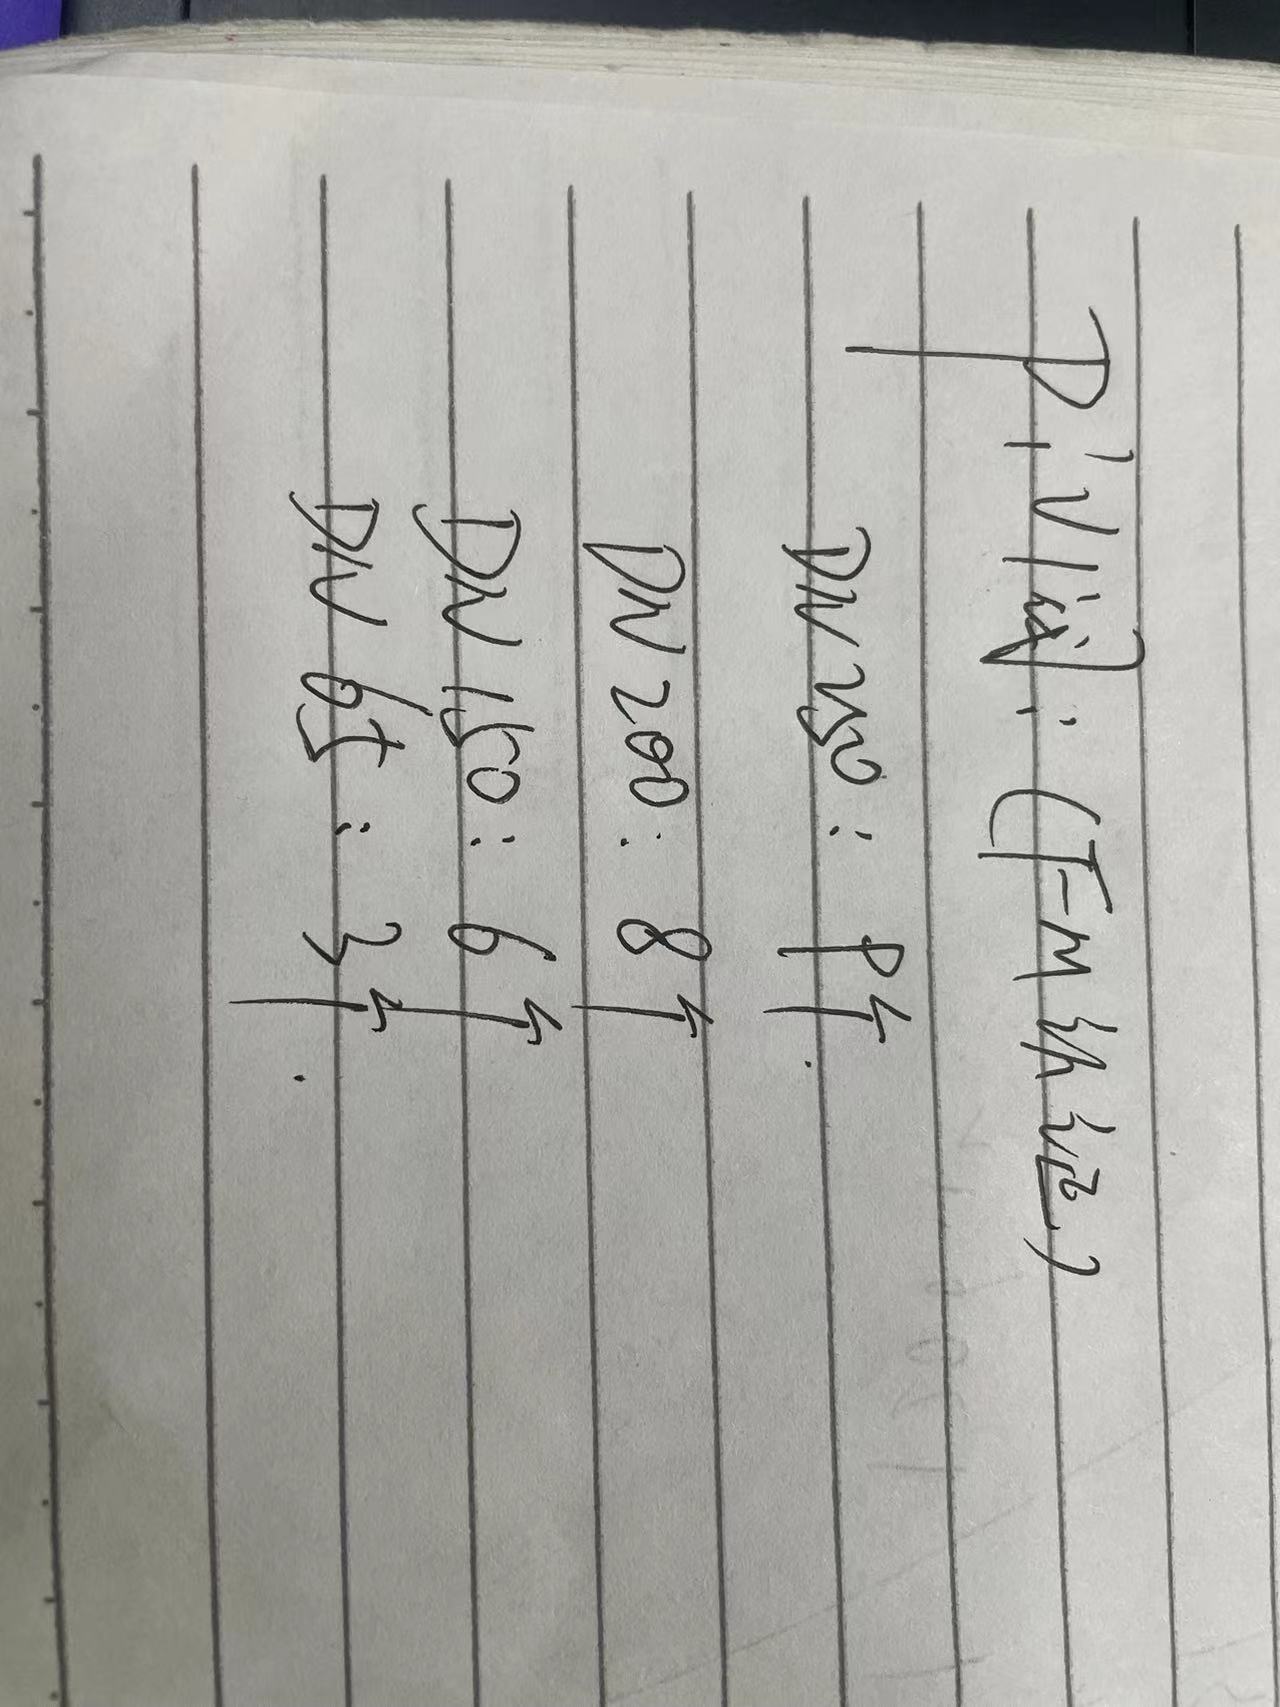 PIV阀: (
DN250: 9个.
DN200: 8个
DN150: 6个
DN65: 3个.